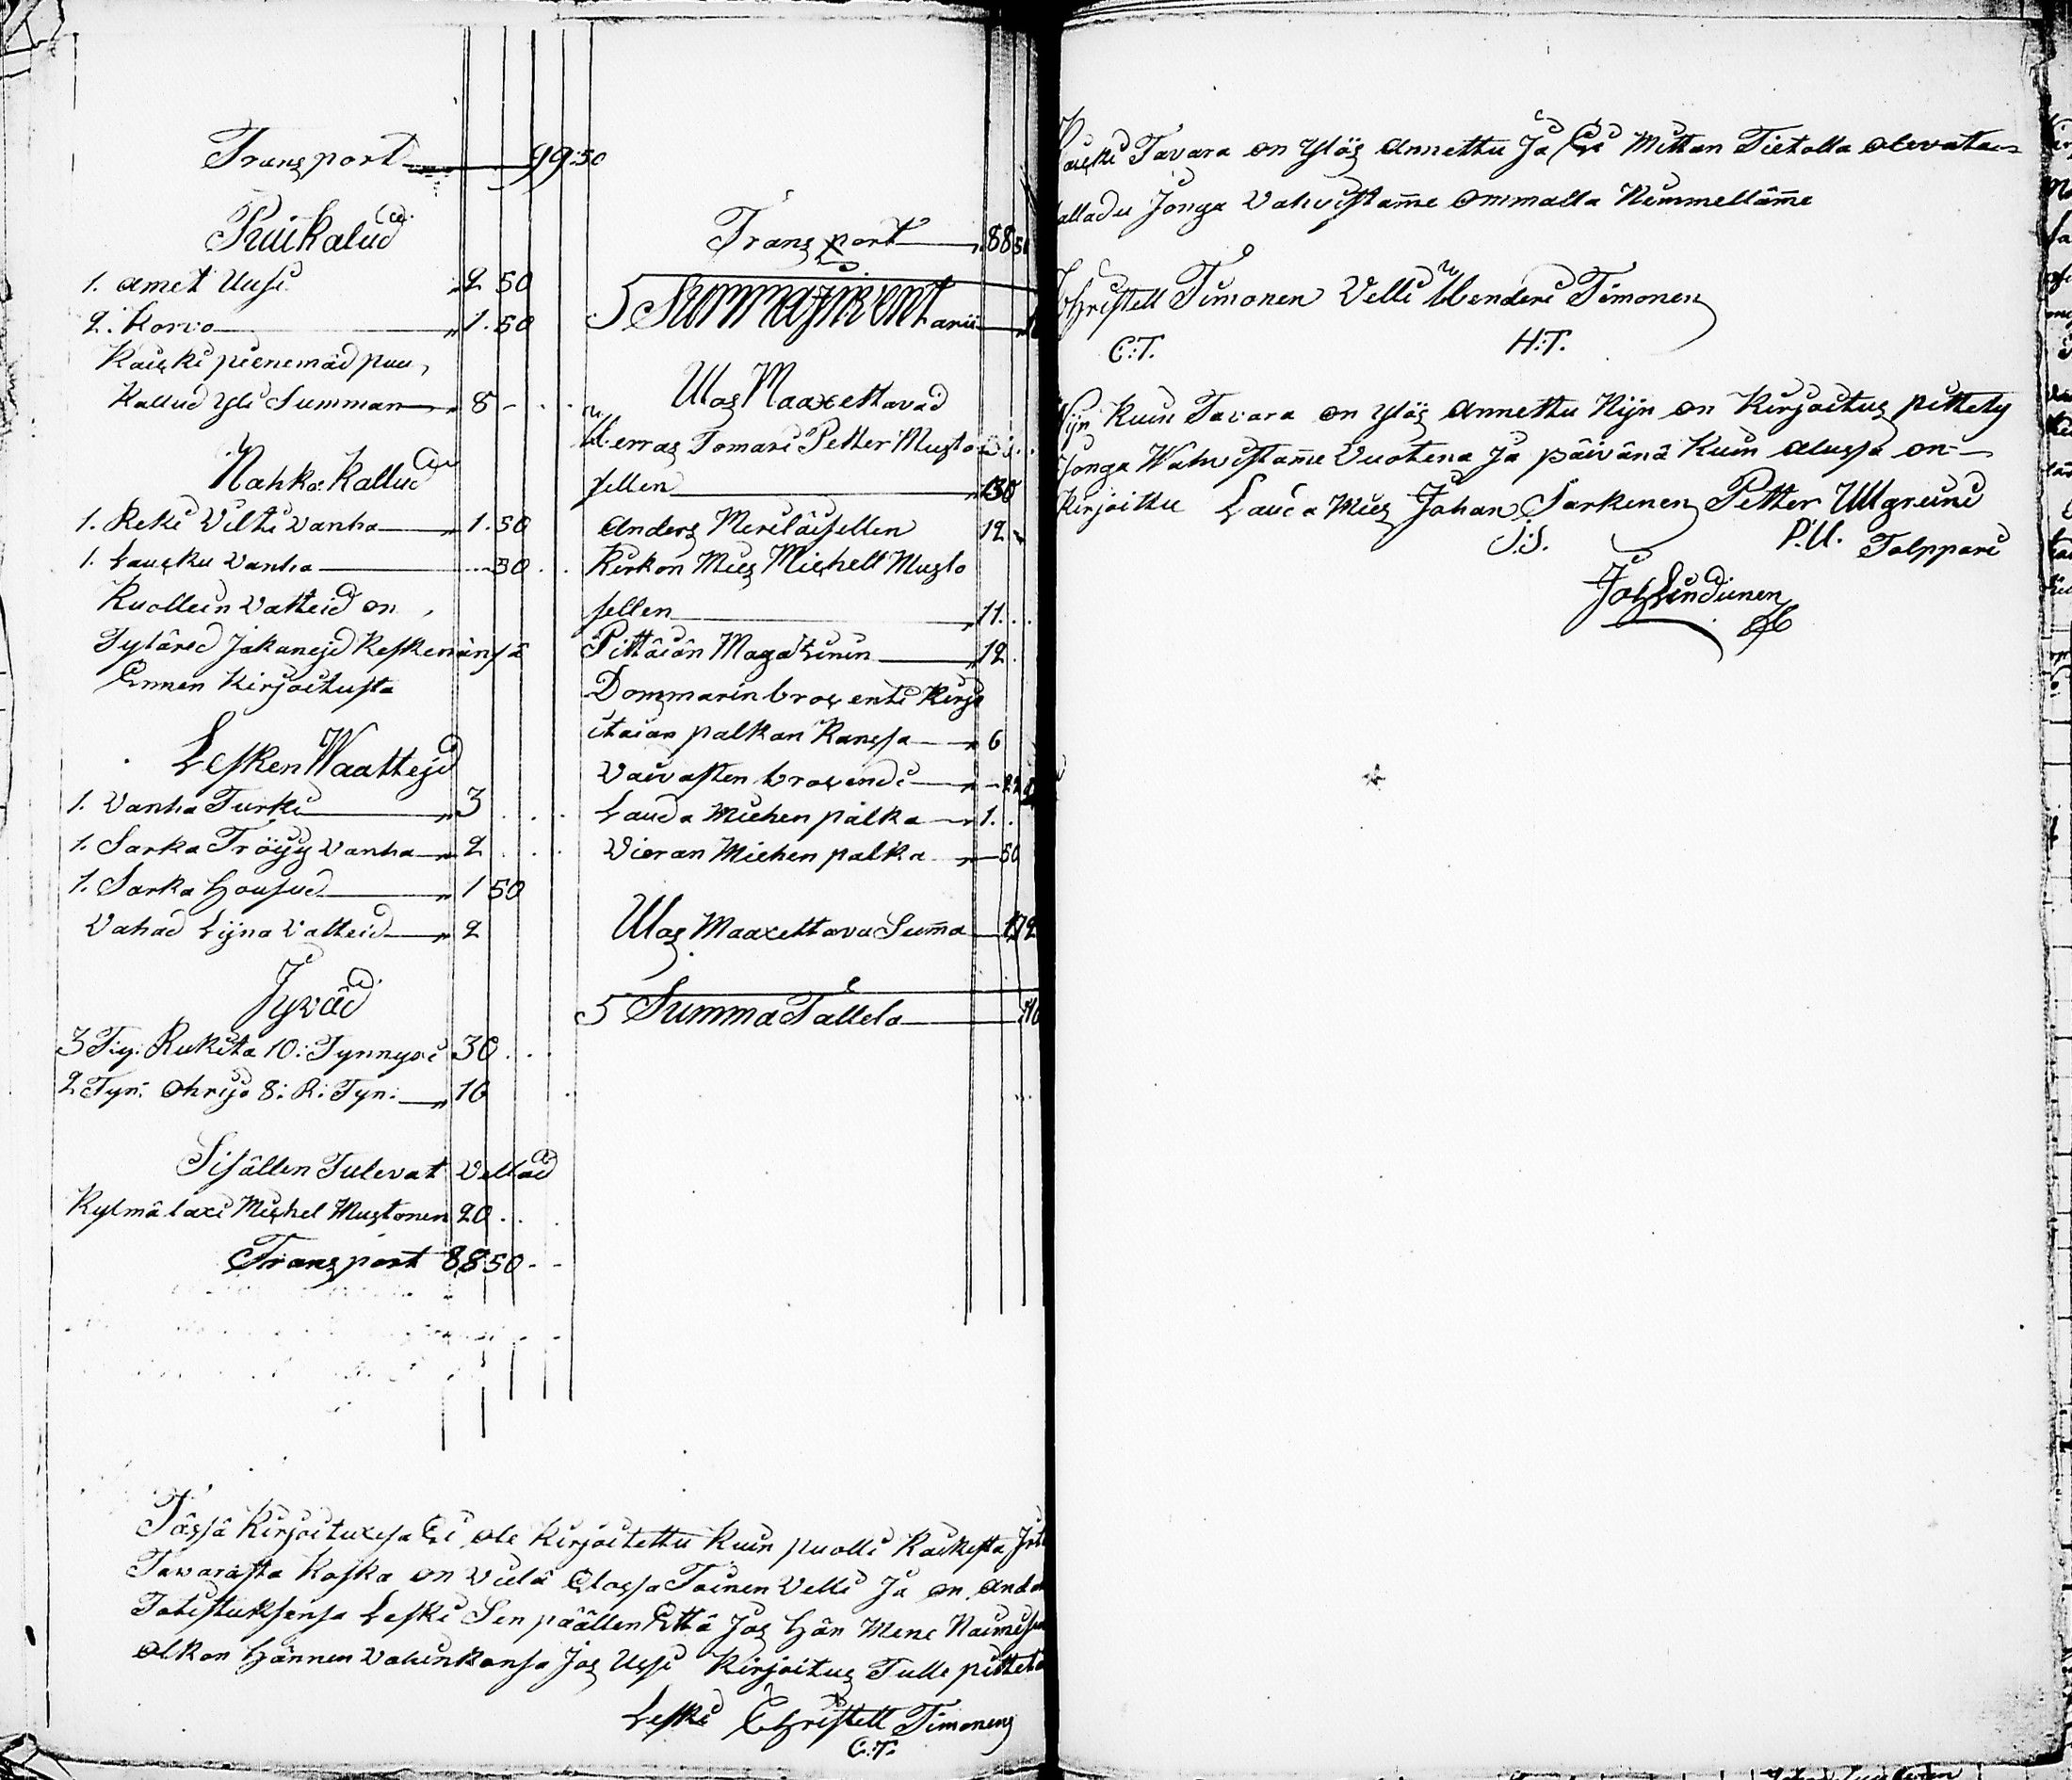 Transport 99:50
Puukalud
1. Amet Uusi 2 50
2. Korvo 1.50
Kaiski pienemäd puu,
Kallud Yli Summan 8 -
Nahka Kallud
1. Reki Vilti Vanha 1.50
1. Lausku Vanha 30
Kuollein Vatteid on,
Tytäred Jakanejd Keskenänsä
Ennen Kirjoitusta
Lesken Waattejd
1. Vanha Turki 3
1. Sarka Tröijy Vanha 2
1. Sarka Housud 1 50
Vahad Lijna Vatteid 2
Jyväd
3 Ty: Rukita 10: Tynnyri 30
2 Tyn: Ohrija 8: R: Tyn: 16
Sisällen Tulevat Vellad
Kylmälaxi Mischel Mustonen 20
Transport 88:50
Transport 88:5
S Summa Inventarii
Ulos Maaxettavad
Herras Tomari Petter Musto
sellen 130
Anders Meriläisellen 12
Kirkon Mies Mischell Musto
sellen 11.
Pittäiän Magatzinin 12
Dommarin brosenti Kirjo
itaian palkan Kanssa 6
Vaivasten brosendi 22
Lauda Miehen palka 1.
Vieran Miehen palka 50
Ulos Maaxettava Summa 172
S Summa Tallela
Tässä Kirjoituxesa Ei ole Kirjoitettu Kuin puolli Kaikesta
Tavarasta Koska on Vielä Elossa Toinen Velli Ja on
Todistuksensa Leski Sen päällen Että Jos Hän Mene
Olkon Hännen Vahinkonsa Jos Ussi Kirjoitus Tulle
Leski Christell Timonen
C:T:
Kaiski Tavara on Ylös Annettu Ja Ei Mittan Tietolla olevata
salladu Jonga Vahvistame Ommalla Nimmellämme
Christell Timonen Velli Henderi Timonen
C:T. H:T.
Nijn Kuin Tavara on Ylös Annettu Nijn on Kirjoitus pittety
Jonga Wahvistame Vuotena Ja päivänä Kuin alussa on
Kirjoittu Lauda Mies Johan Sarkinen Petter Ulgreini
J:S. P:U. Talppari
Joh Lindinen